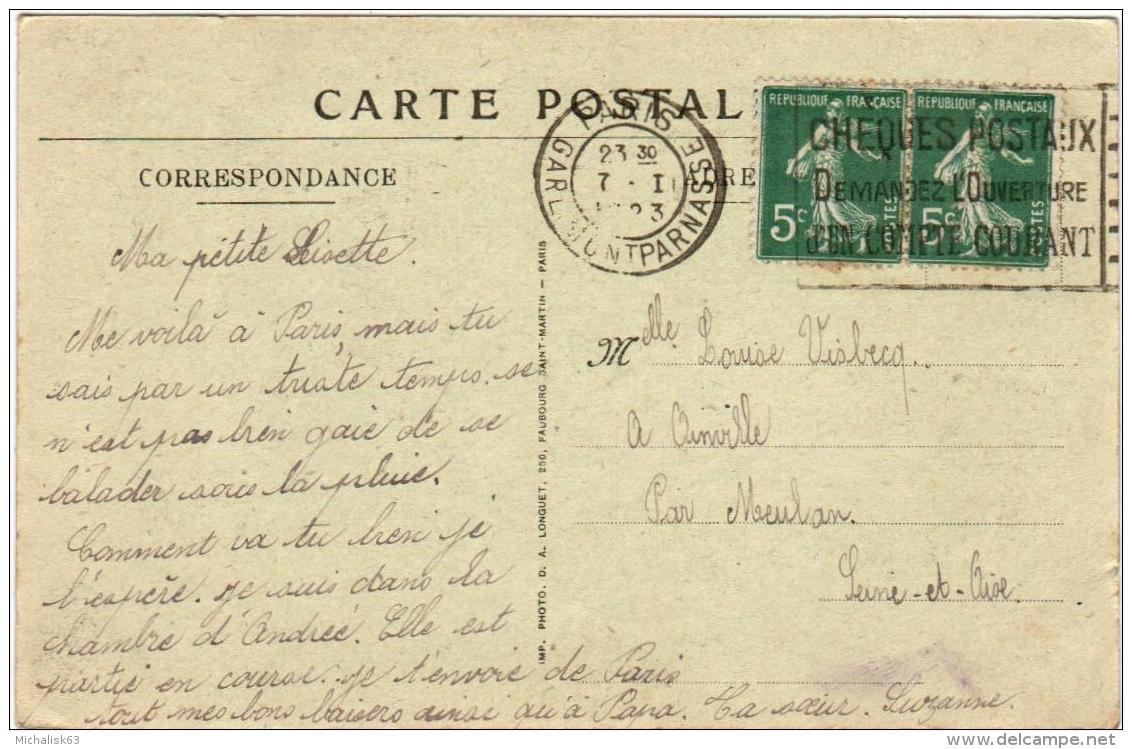 CARTE POSTALE
CORRESPONDANCE
ADRE
PARIS
GARE MONTPARNASSE
23 30
7 - I
1923
REPUBLIQUE FRANÇAISE
5c
POSTES
REPUBLIQUE FRANÇAISE
5c
POSTES
CHEQUES POSTAUX
DEMANDEZ L'OUVERTURE
d'UN COMPTE COURANT
Ma petite Lisette.
Me voilà à Paris, mais tu
sais par un triste temps. se
n'est pas bien gaie de se
balader sous la pluie.
Comment va tu bien je
t'espère. je suis dans la
chambre d'Andrée. Elle est
partie en course. je t'envoie de Paris
tout mes bons baisers ainsi qu'à Papa. Ta sœur. Suzanne.
IMP. PHOTO. D. A. LONGUET, 250, FAUBOURG SAINT-MARTIN — PARIS
Melle Louise Visbecq.
A Oinville
Par Meulan.
Seine-et-Oise.
Michalisk63
www.delcampe.net